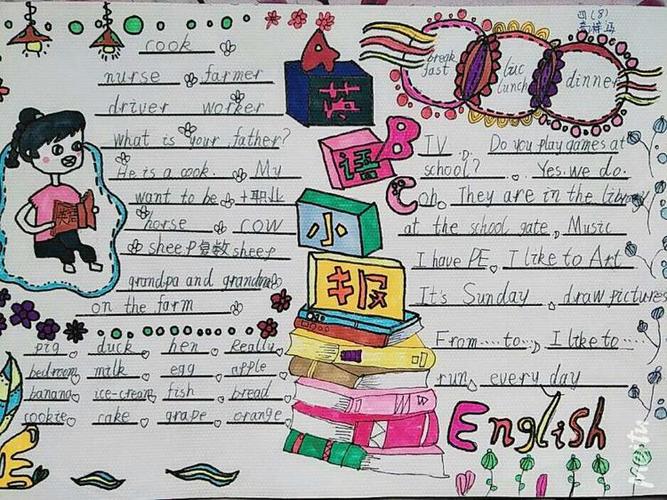 四(8)
cook
nurse farmer
driver worker
what is your father?
He is a cook. My
want to be +职业
horse cow
sheep复数sheep
grandpa and grandma
on the farm
pig duck hen Really
bedroom milk egg apple
banana ice-cream fish bread
cookie cake grape orange
英语
A
英
B
语
C
小
报
breakfast
lunch
dinner
TV Do you play games at
school? Yes. we do.
oh They are in the library
at the school gate, Music
I have PE, I like to Art
It's Sunday, draw pictures
From....to... I like to...
run, every day
English
meitu